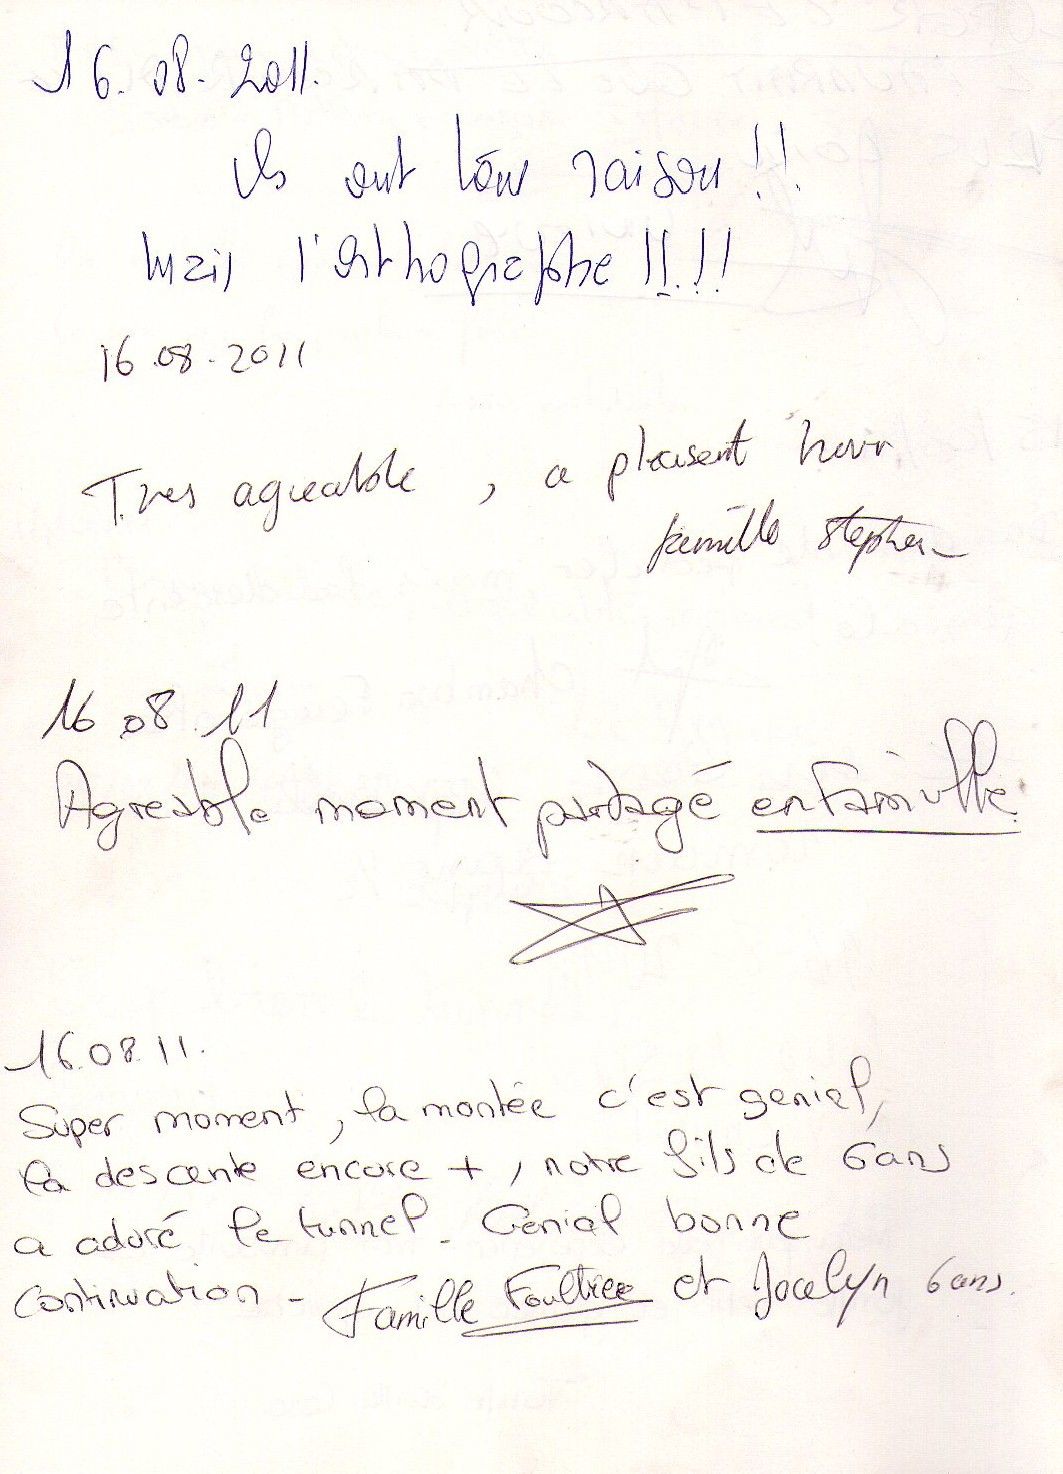 16.08.2011.
Ils ont tous raison !!
mais l'orthographe !!!!
16.08.2011
Tres agreable, a pleasent hour
famille Stephen
16.08.11
Agreable moment partagé en famille.
16.08.11.
Super moment, la montée c'est genial,
la descente encore +, notre fils de 6 ans
a adoré le tunnel. Génial bonne
continuation - Famille Foultier et Jocelyn 6 ans.